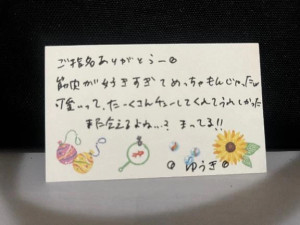 ご指名ありがとうー
筋肉が好きすぎてめっちゃもんじゃった
可愛いって、たーくさんちゅーしてくれてうれしかった
また会えるよね…? まってる!!
ゆうき